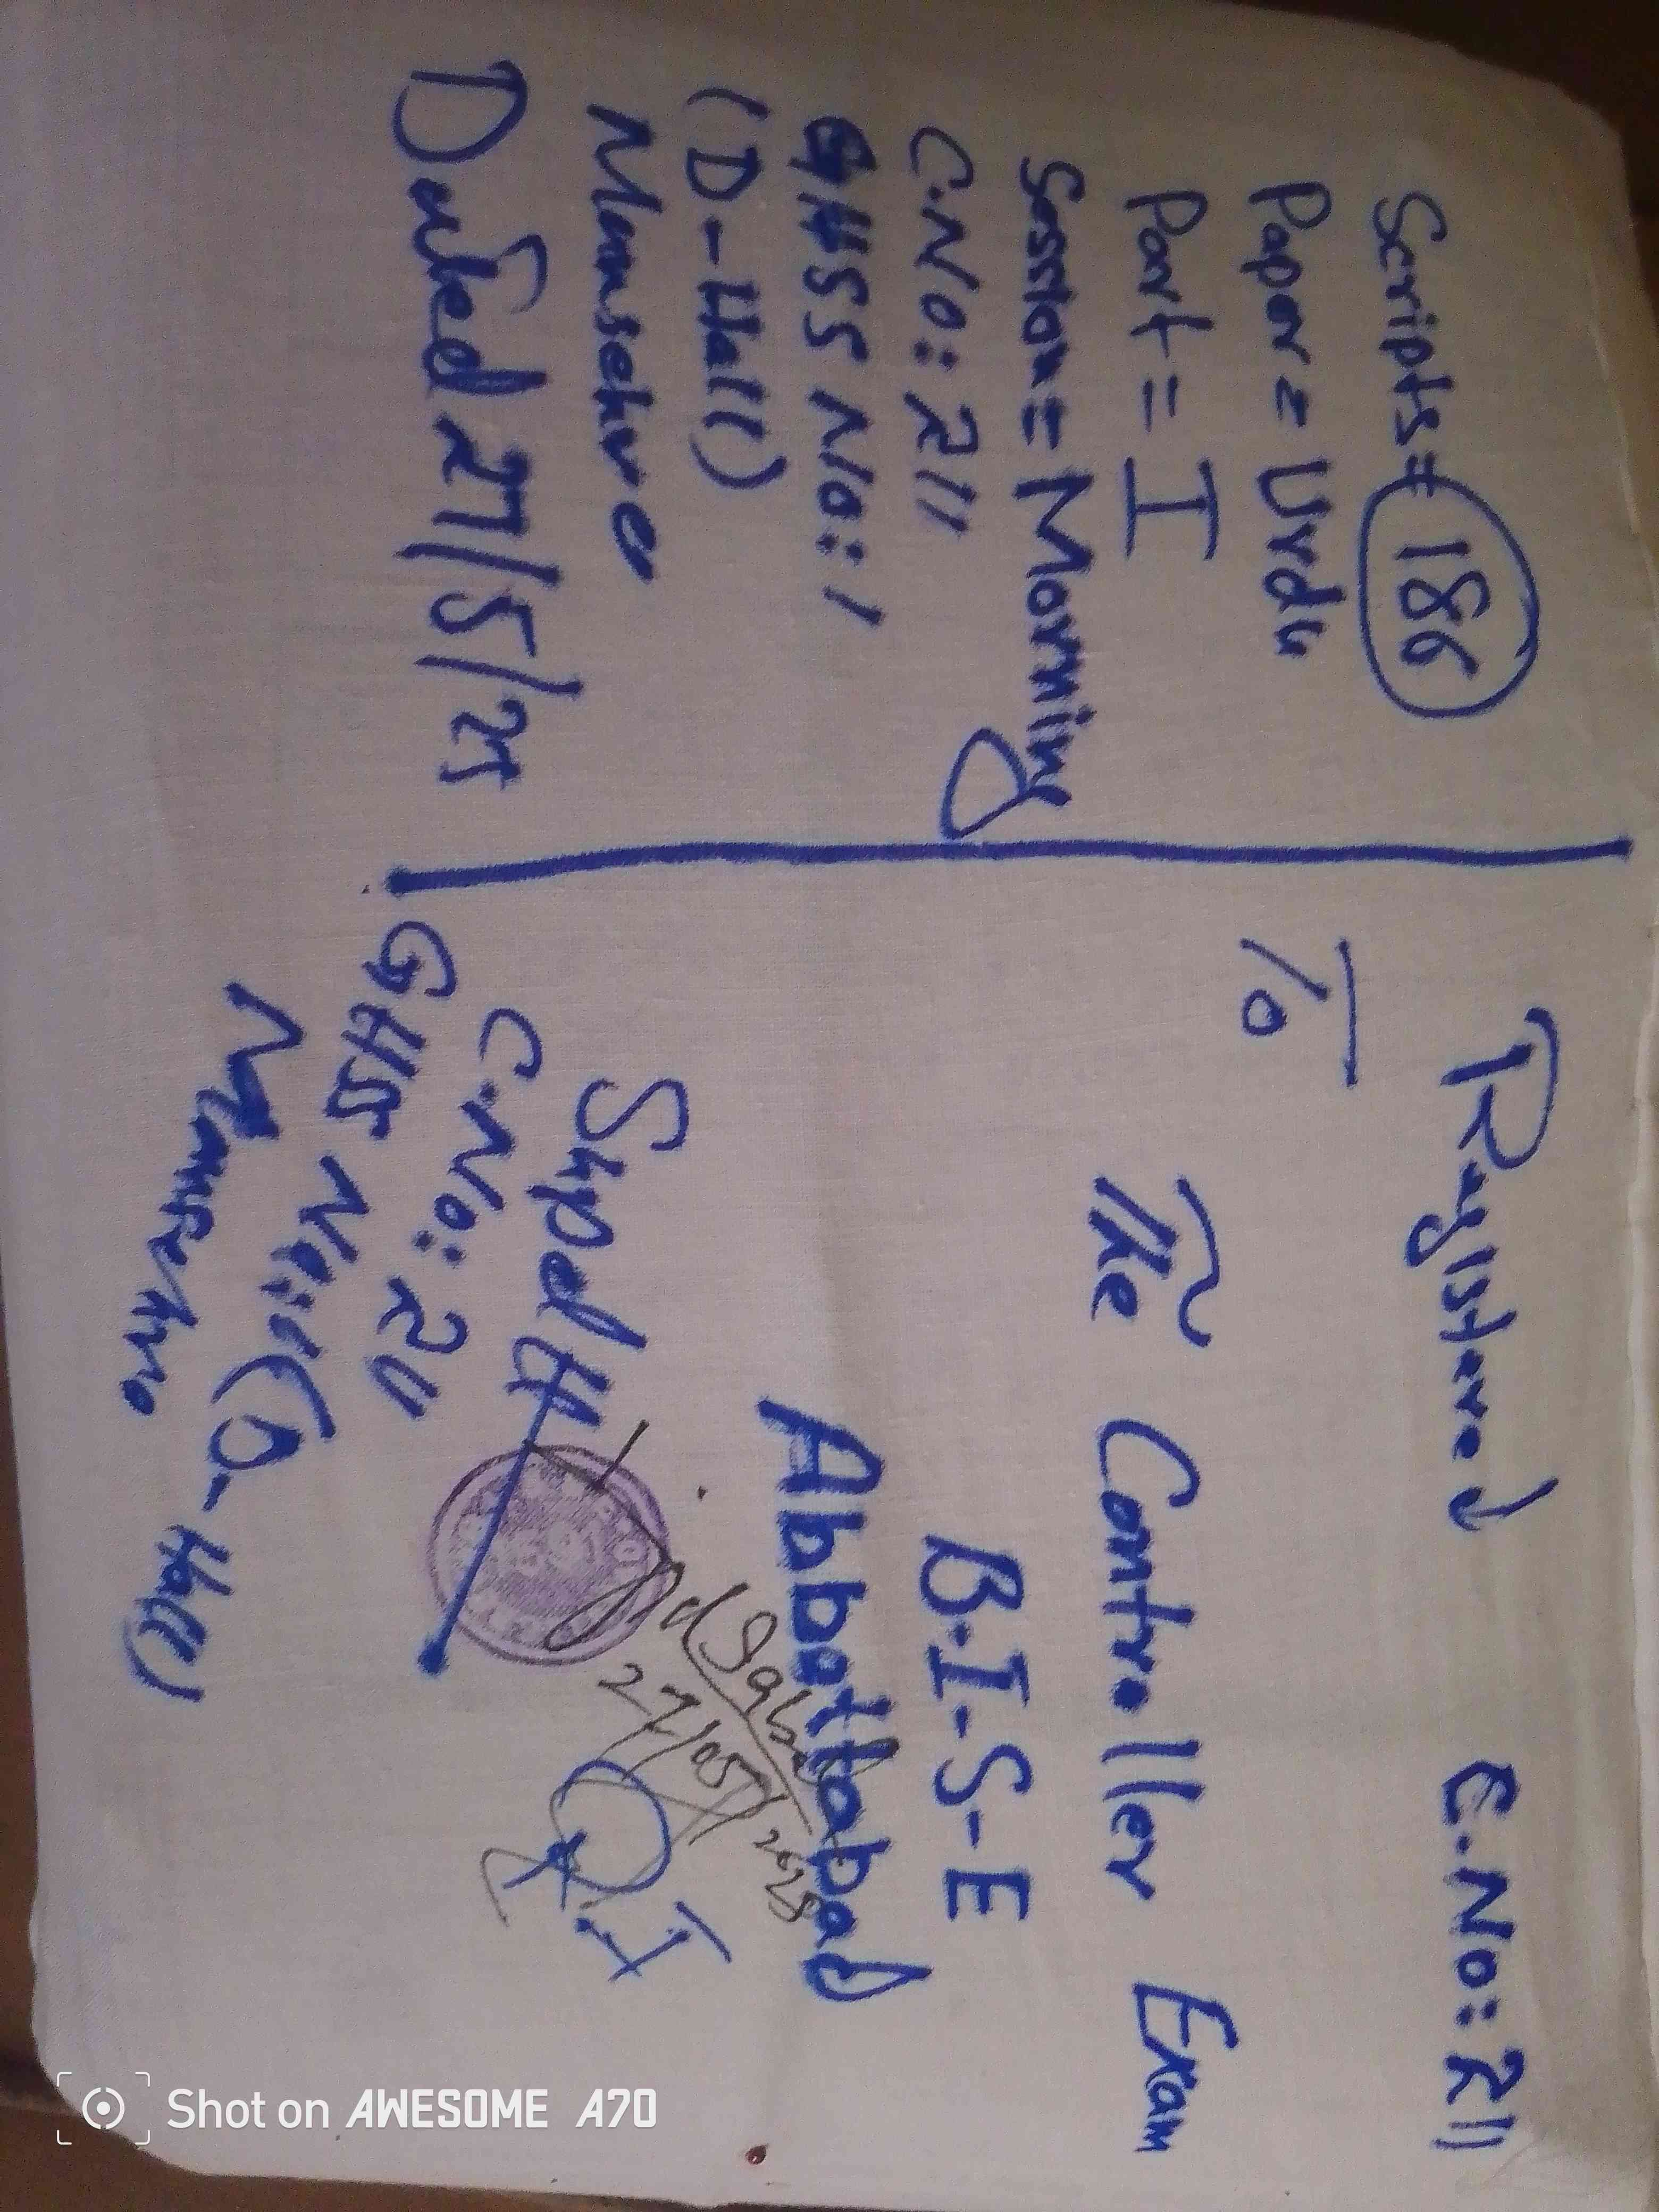 Scripts = 186
Paper = Urdu
Part = I
Session = Morning
C.No: 211
GHSS No: 1
(D-Hall)
Mansehra
Dated 27/5/25
Registered C.No: 211
To
The Controller Exam
B.I-S-E
Abbottabad
Supdtt
C.No: 211
GHSS No: 1 (D-Hall)
Mansehra
27/05/2025
Shot on AWESOME A70